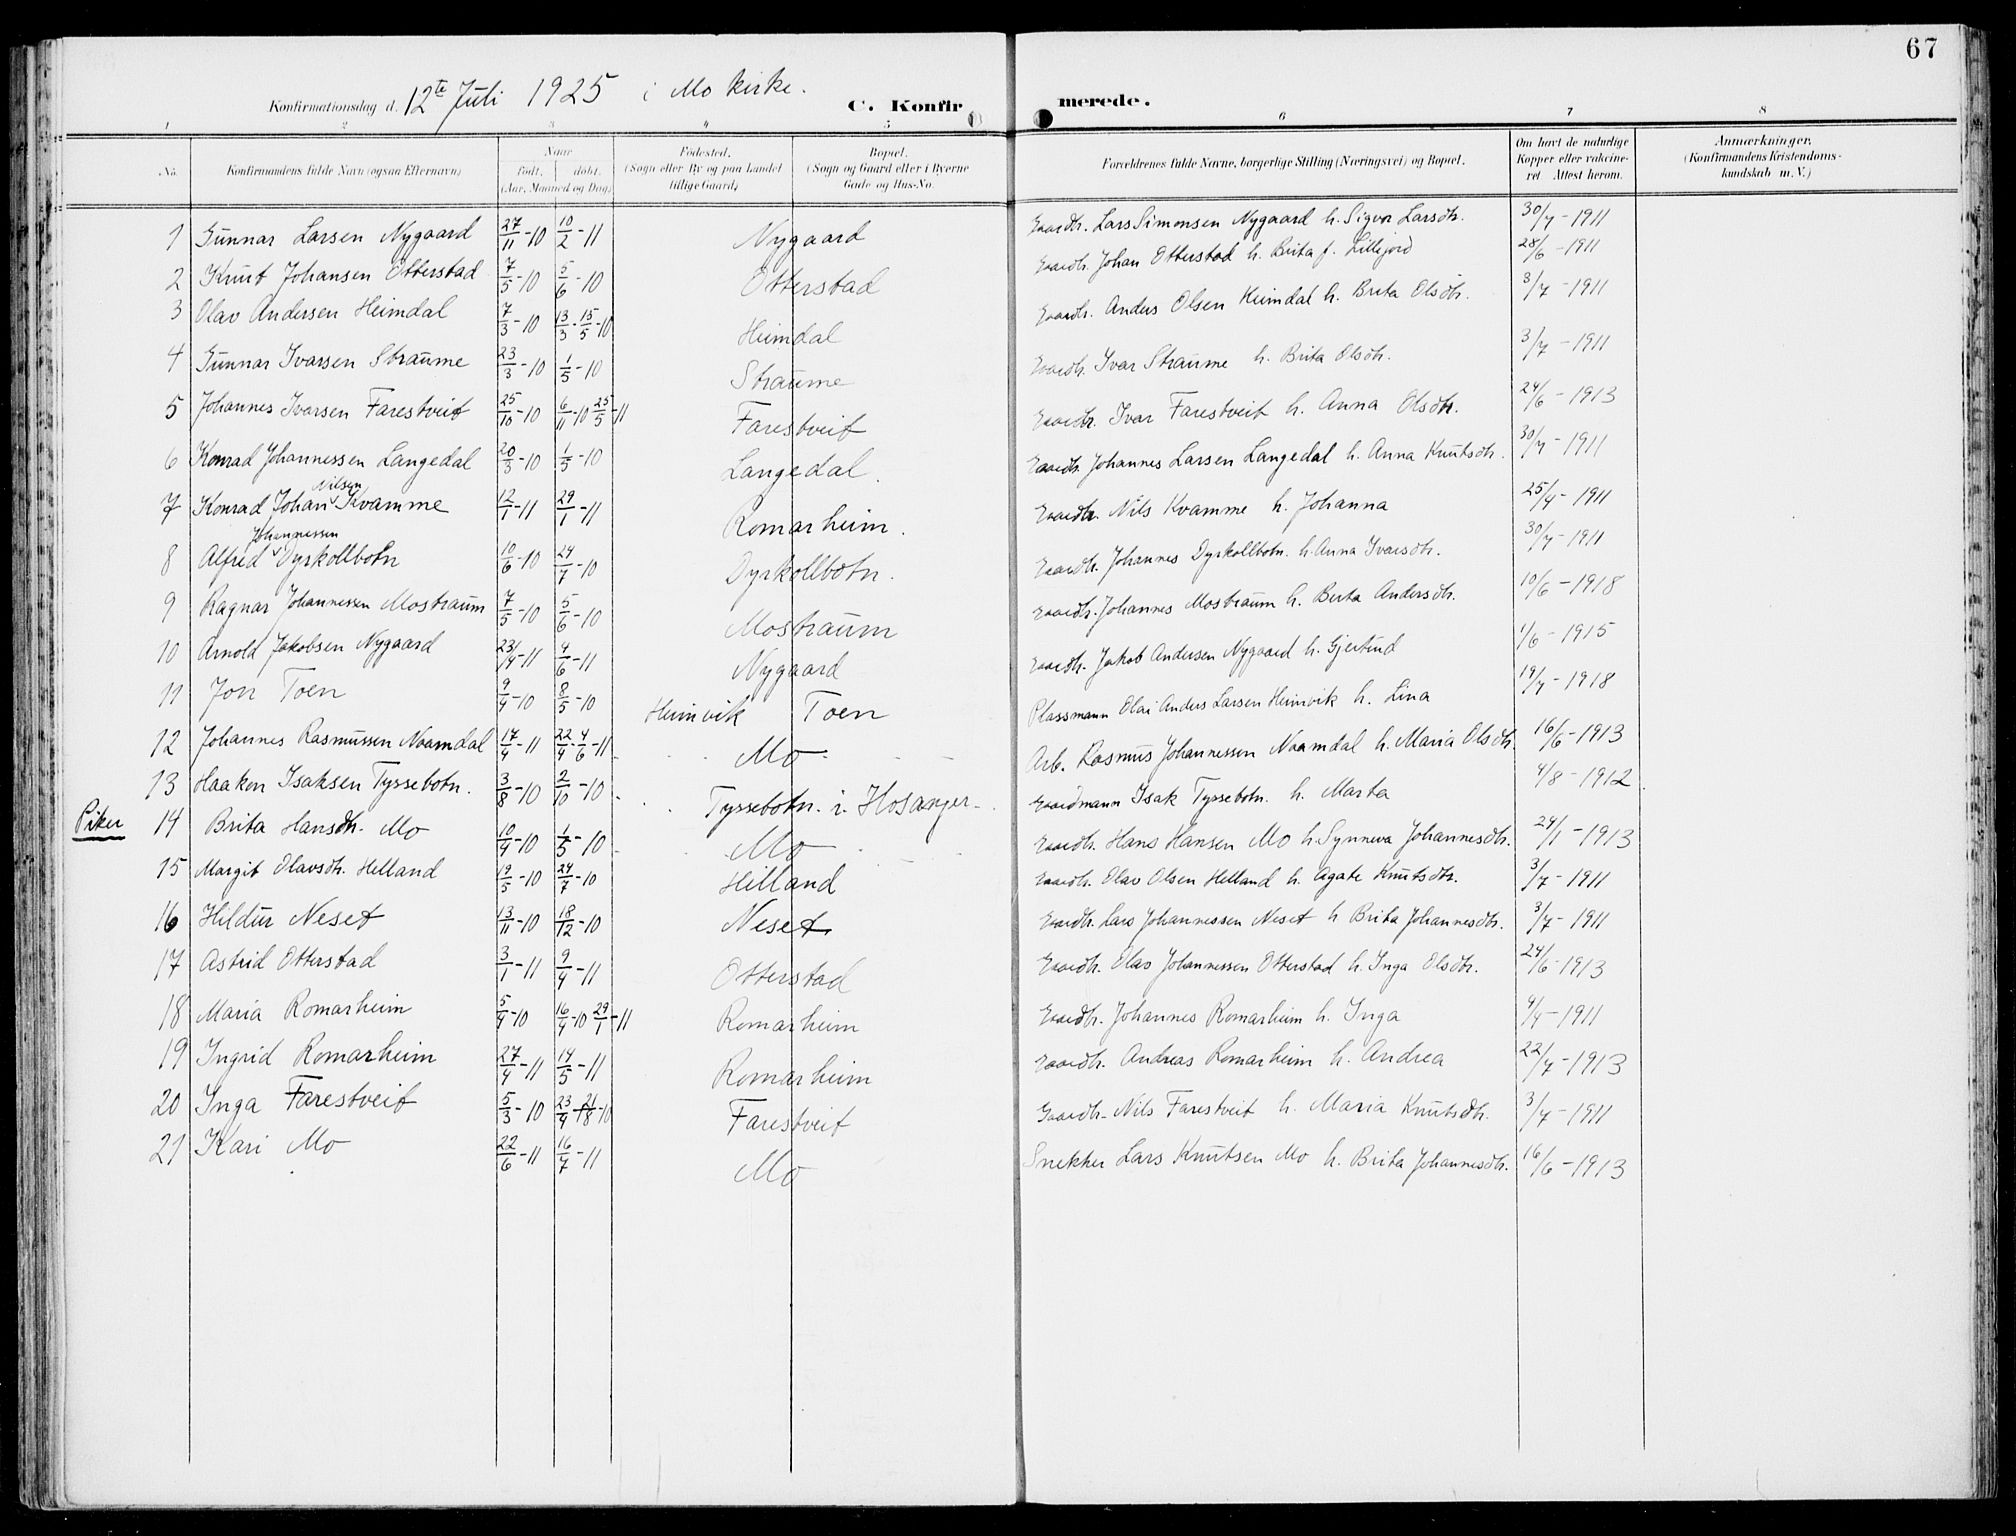 67
Konfirmationsdag d. 12te Juli 1925 i Mo kirke. C. Konfir merede.
1 2 3 4 5 6 7 8
No. Konfirmandens fulde Navn (ogsaa Efternavn) Naar født, døbt. (Aar, Maaned og Dag) Fødested. (Sogn eller By og paa Landet tillige Gaard) Bopæl. (Sogn og Gaard eller i Byerne Gade og Hus-No. Forældrenes fulde Navne, borgerlige Stilling (Næringsvei) og Bopæl. Om havt de naturlige Kopper eller vaccineret Attest herom. Anmærkninger. (Konfirmandens Kristendomskundskab m. V.)
1 Gunnar Larsen Nygaard 27/11-10 10/2-11 Nygaard Gaardbr. Lars Simonsen Nygaard h. Sigvor Larsdtr. 30/7-1911
2 Knut Johansen Otterstad 7/5-10 5/6-10 Otterstad Gaardbr. Johan Otterstad h. Brita f. Lillejord 28/6-1911
3 Olav Andersen Heimdal 7/3-10 13/3-15/5-10 Heimdal Gaardbr. Anders Olsen Heimdal h. Brita Olsdtr. 3/7-1911
4 Gunnar Ivarsen Straume 23/3-10 1/5-10 Straume Gaardbr. Ivar Straume h. Brita Olsdtr. 3/7-1911
5 Johannes Ivarsen Farestveit 25/10-10 6/11-10 25/5-11 Farestveit Gaardbr. Ivar Farestveit h. Anna Olsdtr. 24/6-1913
6 Konrad Johannessen Langedal 20/3-10 1/5-10 Langedal. Gaardbr. Johannes Larsen Langedal h. Anna Knutsdtr. 30/7-1911
7 Konrad Johan Nilsen Kvamme 12/1-11 29/1-11 Romarheim. Gaardbr. Nils Kvamme h. Johanna 25/4-1911
8 Alfred Johannessen Dyrkollbotn 10/6-10 24/7-10 Dyrkollbotn. Gaardbr. Johannes Dyrkollbotn. h. Anna Ivarsdtr. 30/7-1911
9 Ragnar Johannessen Mostraum 7/5-10 5/6-10 Mostraum Gaardbr. Johannes Mostraum h. Berta Andersdtr. 10/6-1918
10 Arnold Jakobsen Nygaard 23/4-11 4/6-11 Nygaard Gaardbr. Jakob Andersen Nygaard h. Gjertrud 1/6-1915
11 Jon Toen 9/4-10 8/5-10 Heimvik Toen Plassmann Olai Anders Larsen Heimvik h. Lina 19/7-1918
12 Johannes Rasmussen Naamdal 17/4-11 22/4-4/6-11 Mo Arb. Rasmus Johannessen Naamdal h. Maria Olsdtr. 16/6-1913
13 Haakon Isaksen Tyssebotn. 3/8-10 2/10-10 Tyssebotn. i Hosanger Gaardmann Isak Tyssebotn. h. Marta 4/8-1912
Piker 14 Brita Hansdtr. Mo 10/4-10 1/5-10 Mo Gaardbr. Hans Hansen Mo h. Synneva Johannesdtr. 24/1-1913
15 Margit Olavsdtr. Helland 19/5-10 24/7-10 Helland Gaardbr. Olav Olsen Helland h. Agate Knutsdtr. 3/7-1911
16 Hildur Neset 13/11-10 18/12-10 Neset Gaardbr. Lars Johannessen Neset h Brita Johannesdtr. 3/7-1911
17 Astrid Otterstad 3/1-11 9/4-11 Otterstad Gaardbr. Olav Johannessen Otterstad h. Inga Olsdtr. 24/6-1913
18 Maria Romarheim 5/4-10 16/4-10 29/1-11 Romarheim Gaardbr. Johannes Romarheim h. Inga 9/4-1911
19 Ingrid Romarheim 27/4-11 14/5-11 Romarheim Gaardbr. Andreas Romarheim h. Andrea 22/7-1913
20 Inga Farestveit 5/3-10 23/4-21/8-10 Farestveit Gaardbr. Nils Farestveit h. Maria Knutsdtr. 3/7-1911
21 Kari Mo 22/6-11 16/7-11 Mo Snekker Lars Knutsen Mo h. Brita Johannesdtr. 16/6-1913